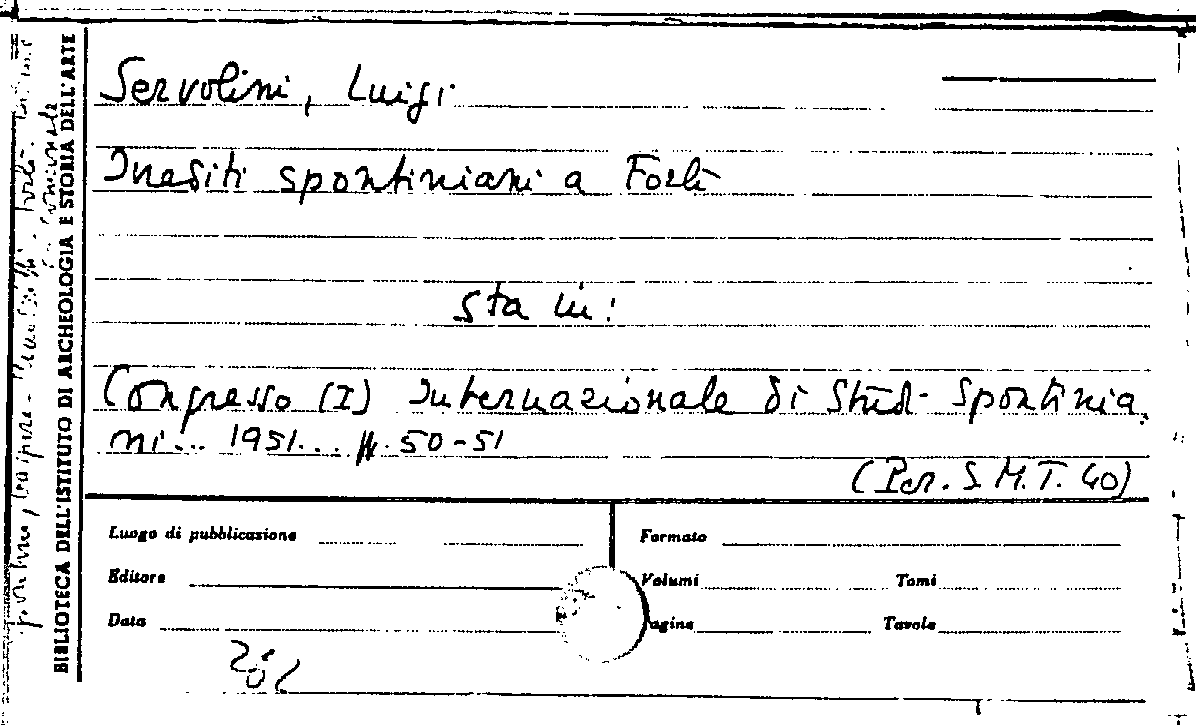 Servolini, Luigi
Inediti spontiniani a Forlì
sta in:
Congresso (I) Internazionale di Studi Spontinia-
ni... 1951... pp. 50-51
(Per. S.M.T. 40)
Luogo di pubblicazione
Formato
Editore
Volumi
Tomi
Data
agine
Tavole
BIBLIOTECA DELL'ISTITUTO DI ARCHEOLOGIA E STORIA DELL'ARTE